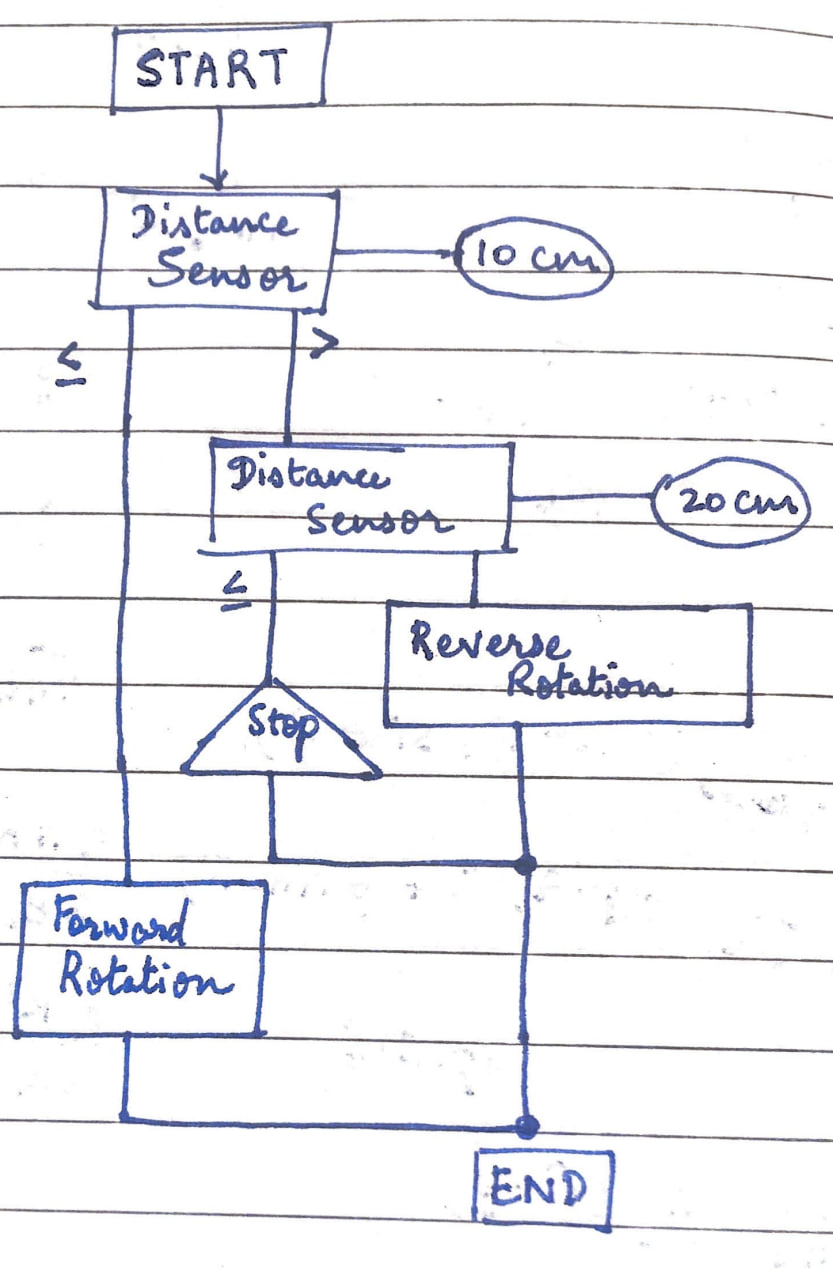 START
Distance
Sensor
10 cm
≤
>
Distance
Sensor
20 cm
≤
Reverse
Rotation
Stop
Forward
Rotation
END